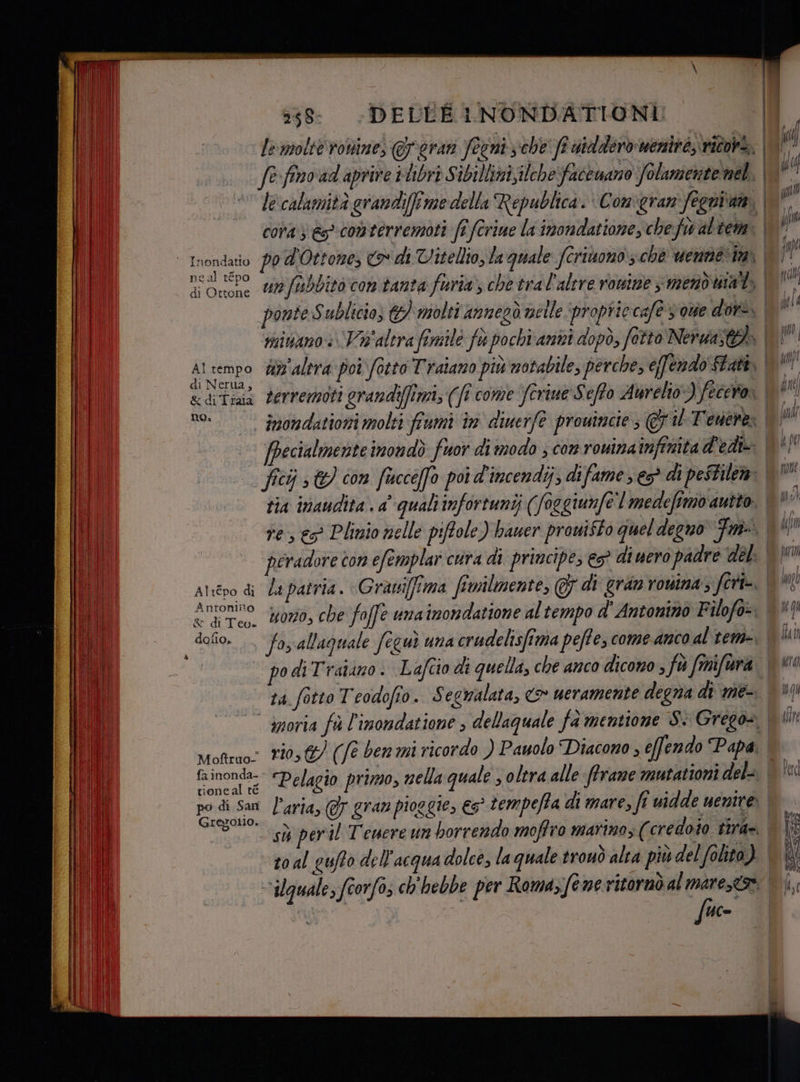 258 DELLE INONDATIONI
le molte rouine, & gran segni, che si uiddero uenire, ricor=
se fino ad aprire i libri Sibillini, ilche faceuano solamente nel
le calamità grandissime della Republica. Con gran segni an=
cora, & con terremoti si scriue la inondatione, che fù al tem=
po d'Ottone, & di Vitellio, la quale scriuono, che uenne in
un subbito con tanta furia, che tra l'altre rouine, menò uia'l
ponte Sublicio, & molti annegò nelle proprie case, oue dor=
miuano. Vn'altra simile fù pochi anni dopò, sotto Nerua, &
un'altra poi sotto Traiano più notabile, perche, essendo stati
terremoti grandissimi, (si come scriue Sesto Aurelio) fecero
inondationi molti fiumi in diuerse prouincie, & il Teuere
specialmente inondò fuor di modo, con rouina infinita d'edi=
ficij, & con successo poi d'incendij, di fame, & di pestilen=
tia inaudita. a' quali infortunij (soggiunse'l medesimo autto=
re, & Plinio nelle pistole) hauer prouisto quel degno Im=
peradore con esemplar cura di principe, & di uero padre del
la patria. Grauissima similmente, & di gran rouina, scri=
uono, che fosse una inondatione al tempo d'Antonino Filoso=
fo, allaquale seguì una crudelissima peste, come anco al tem=
po di Traiano. Lascio di quella, che anco dicono, fù smisura
ta sotto Teodosio. Segnalata, & ueramente degna di me=
moria fù l'inondatione, dellaquale fà mentione S. Grego=
rio, & (se ben mi ricordo) Pauolo Diacono, essendo Papa
Pelagio primo, nella quale, oltra alle strane mutationi del=
l'aria, & gran pioggie, & tempesta di mare, si uidde uenire
sù per il Teuere un horrendo mostro marino, (credo io tira=
to al gusto dell'acqua dolce, la quale trouò alta più del solito)
ilquale, scorso, ch'hebbe per Roma, se ne ritornò al mare, &
suc=
Inondatio
ne al tẽpo
di Ottone
Al tempo
di Nerua,
& di Traia
no.
Al tẽpo di
Antonino
& di Teo=
dosio.
Mostruo=
sa inonda=
tione al tẽ
po di San
Gregorio.